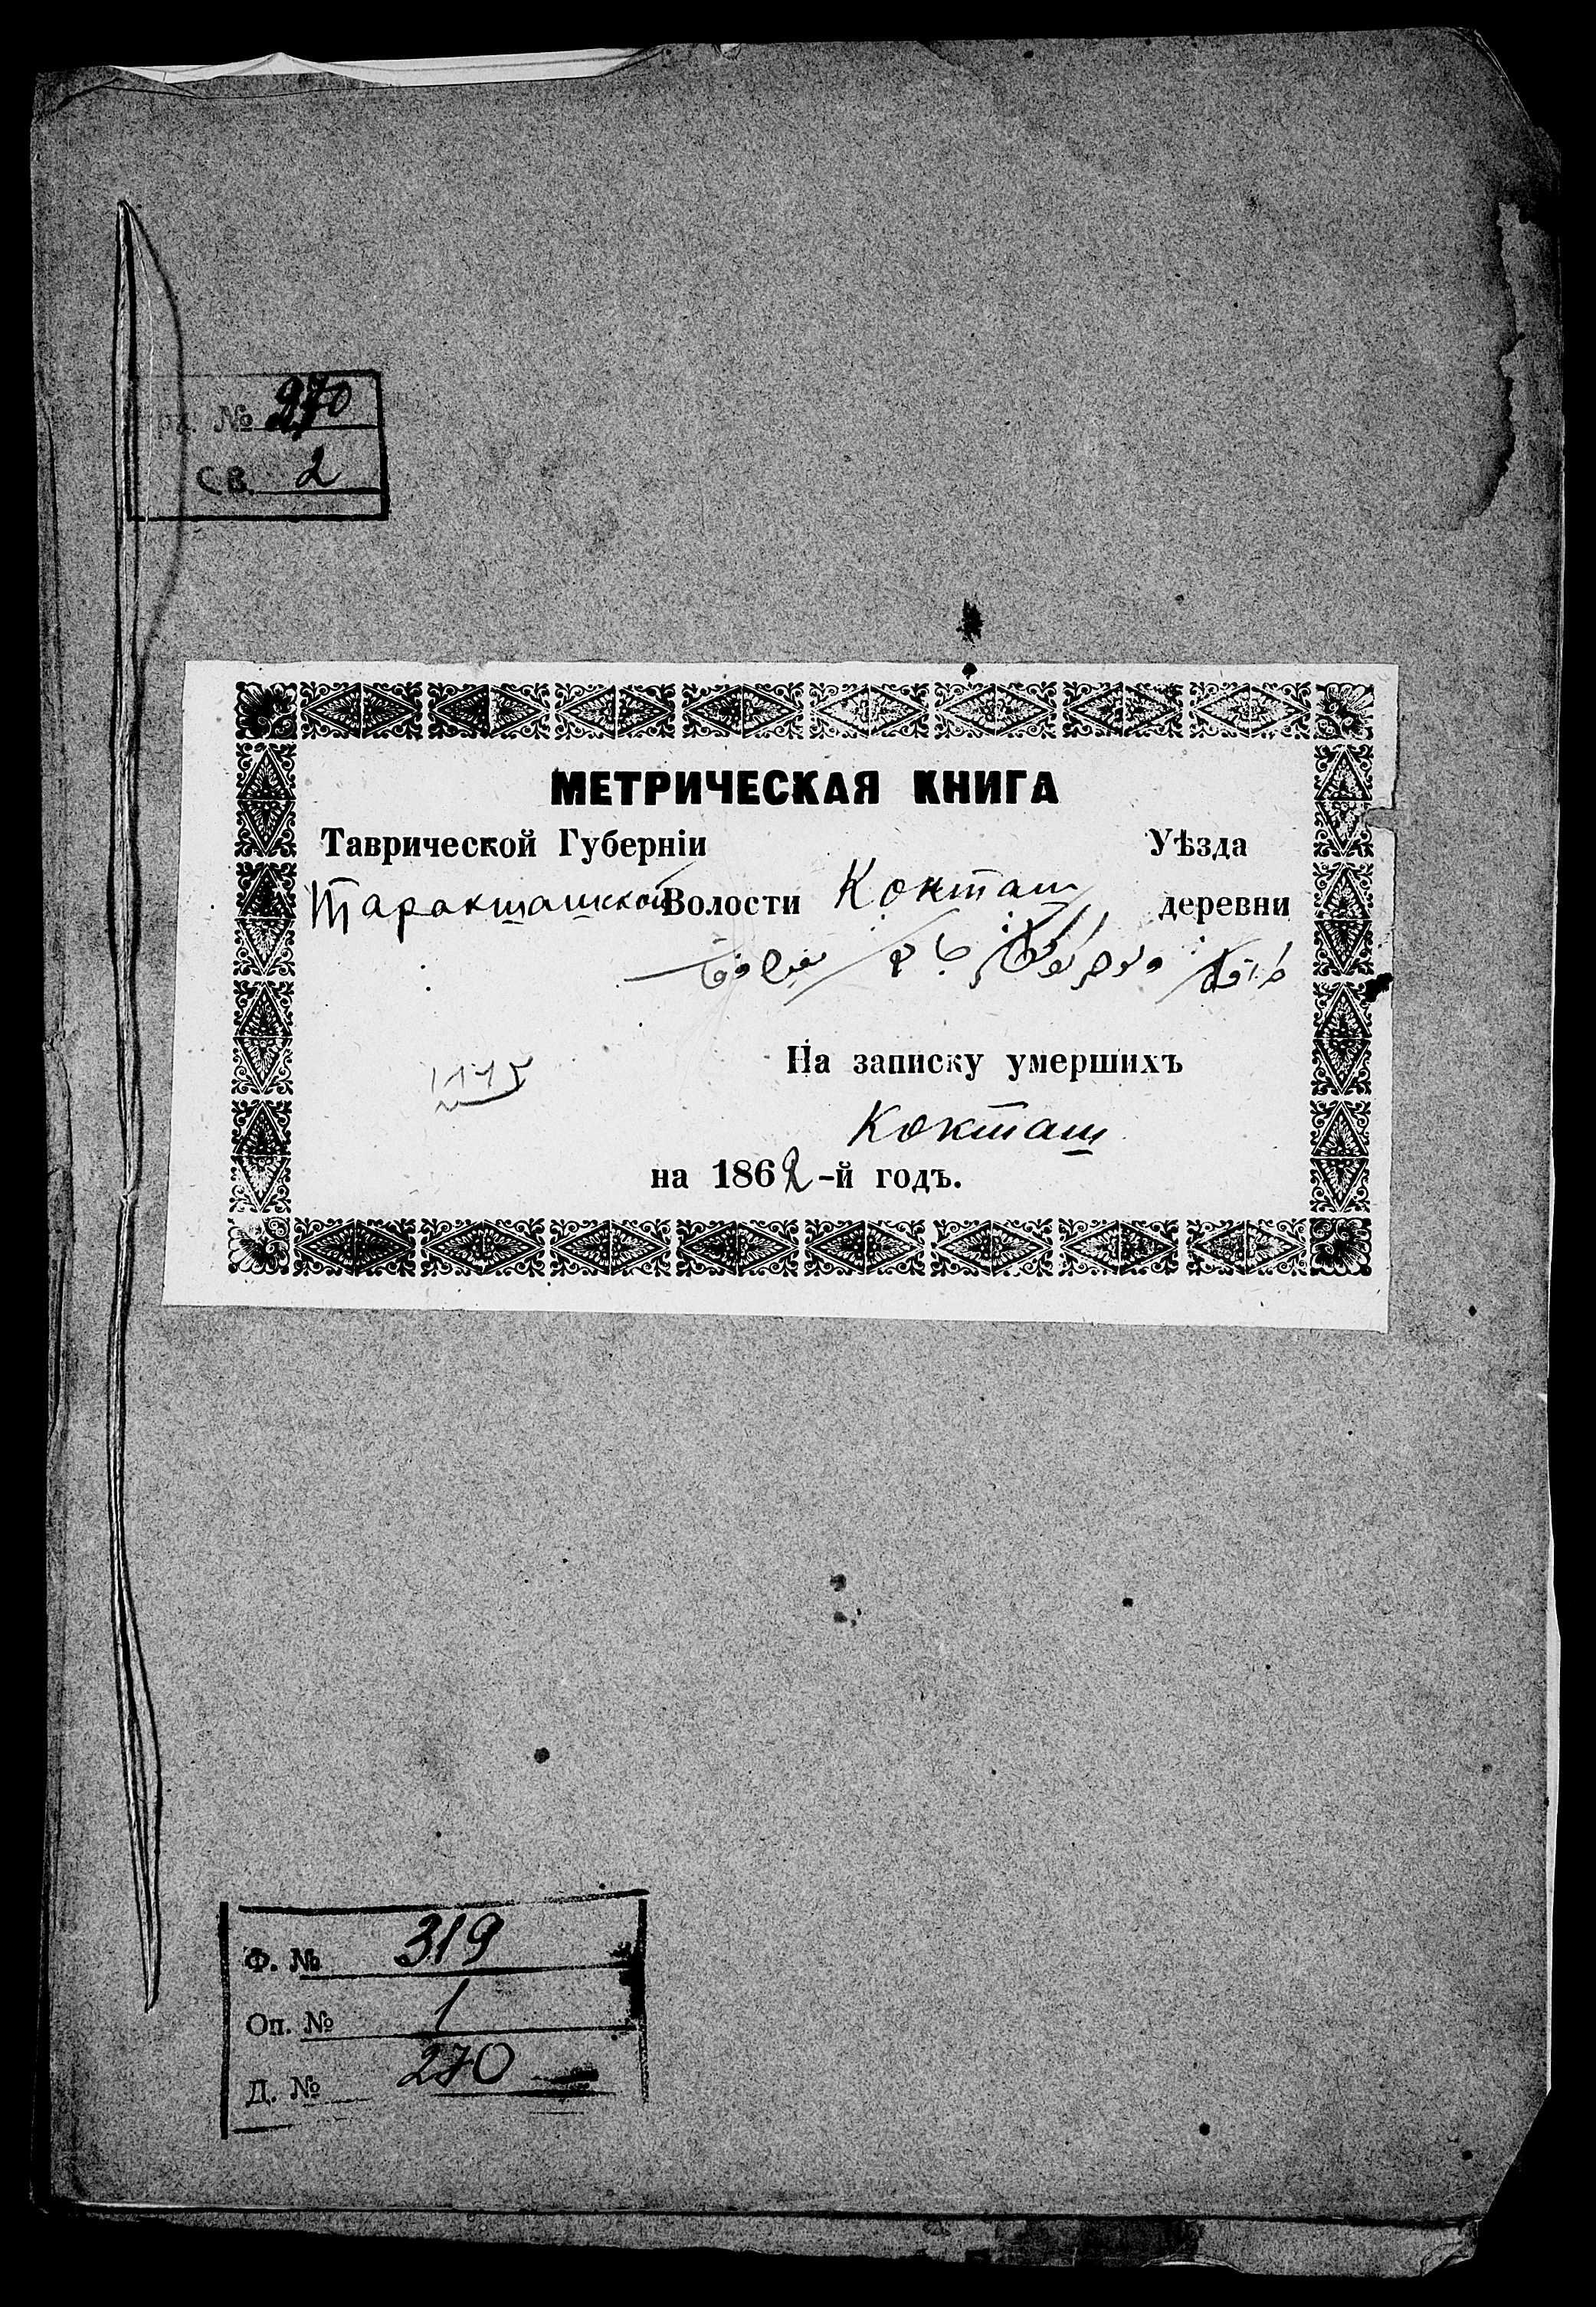 № 270
св. 2
МЕТРИЧЕСКАЯ КНИГА
Таврической Губерніи Уѣзда
Таракташской Волости Кокташ деревни
На записку умершихъ
Кокташ
на 1862-й годъ.
Ф. № 319
Оп. № 1
Д. № 270